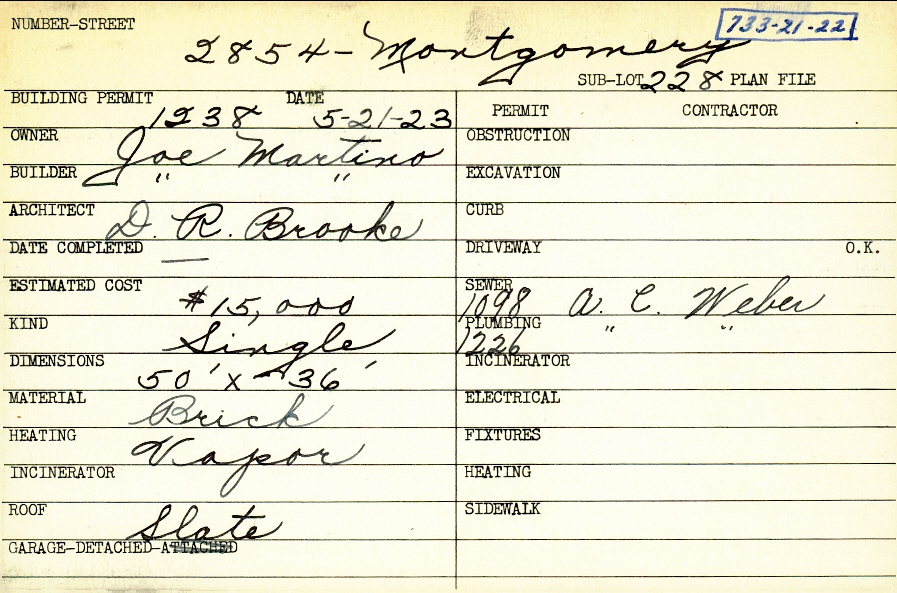 NUMBER-STREET 733-21-22
2854-Montgomery
SUB-LOT 228 PLAN FILE
BUILDING PERMIT 1238 DATE 5-21-23
PERMIT CONTRACTOR
OWNER Joe Martino
OBSTRUCTION
BUILDER " "
EXCAVATION
ARCHITECT D. R. Brooke
CURB
DATE COMPLETED —
DRIVEWAY O.K.
ESTIMATED COST $15,000
SEWER 1098 A. C. Weber
KIND Single
PLUMBING 1226 " "
DIMENSIONS 50' x 36'
INCINERATOR
MATERIAL Brick
ELECTRICAL
HEATING Vapor
FIXTURES
INCINERATOR
HEATING
ROOF Slate
SIDEWALK
GARAGE-DETACHED-ATTACHED